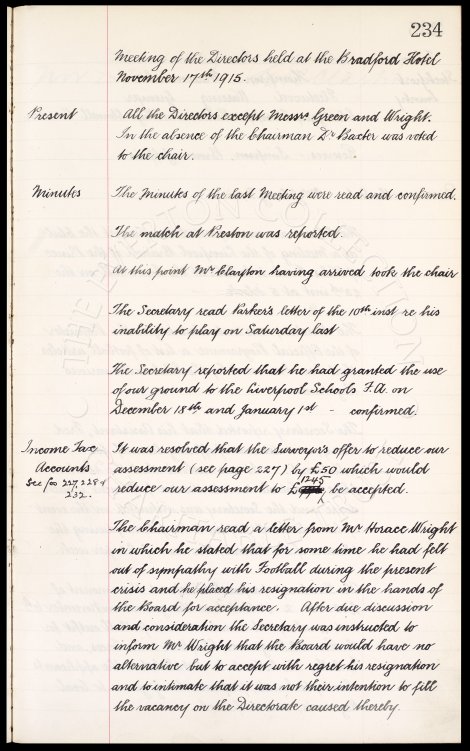 234
Meeting of the Directors held at the Bradford Hotel
November 17th 1915.
Present All the Directors except Messrs. Green and Wright.
In the absence of the Chairman Dr Baxter was voted
to the chair.
Minutes The Minutes of the last Meeting were read and confirmed.
The match at Preston was reported
At this point Mr Clayton having arrived took the chair
The Secretary read Parker's letter of the 10th inst re his
inability to play on Saturday last
The Secretary reported that he had granted the use
of our ground to the Liverpool Schools F.A. on
December 18th and January 1st - confirmed.
Income Tax It was resolved that the Surveyor's offer to reduce our
Accounts assessment (see page 227) by £50 which would
See fos 227, 228 & 232. reduce our assessment to £1245 be accepted.
The Chairman read a letter from Mr Horace Wright
in which he stated that for some time he had felt
out of sympathy with Football during the present
crisis and he placed his resignation in the hands of
the Board for acceptance. After due discussion
and consideration the Secretary was instructed to
inform Mr Wright that the Board would have no
alternative but to accept with regret his resignation
and to intimate that it was not their intention to fill
the vacancy on the Directorate caused thereby.
THE EVERTON COLLECTION